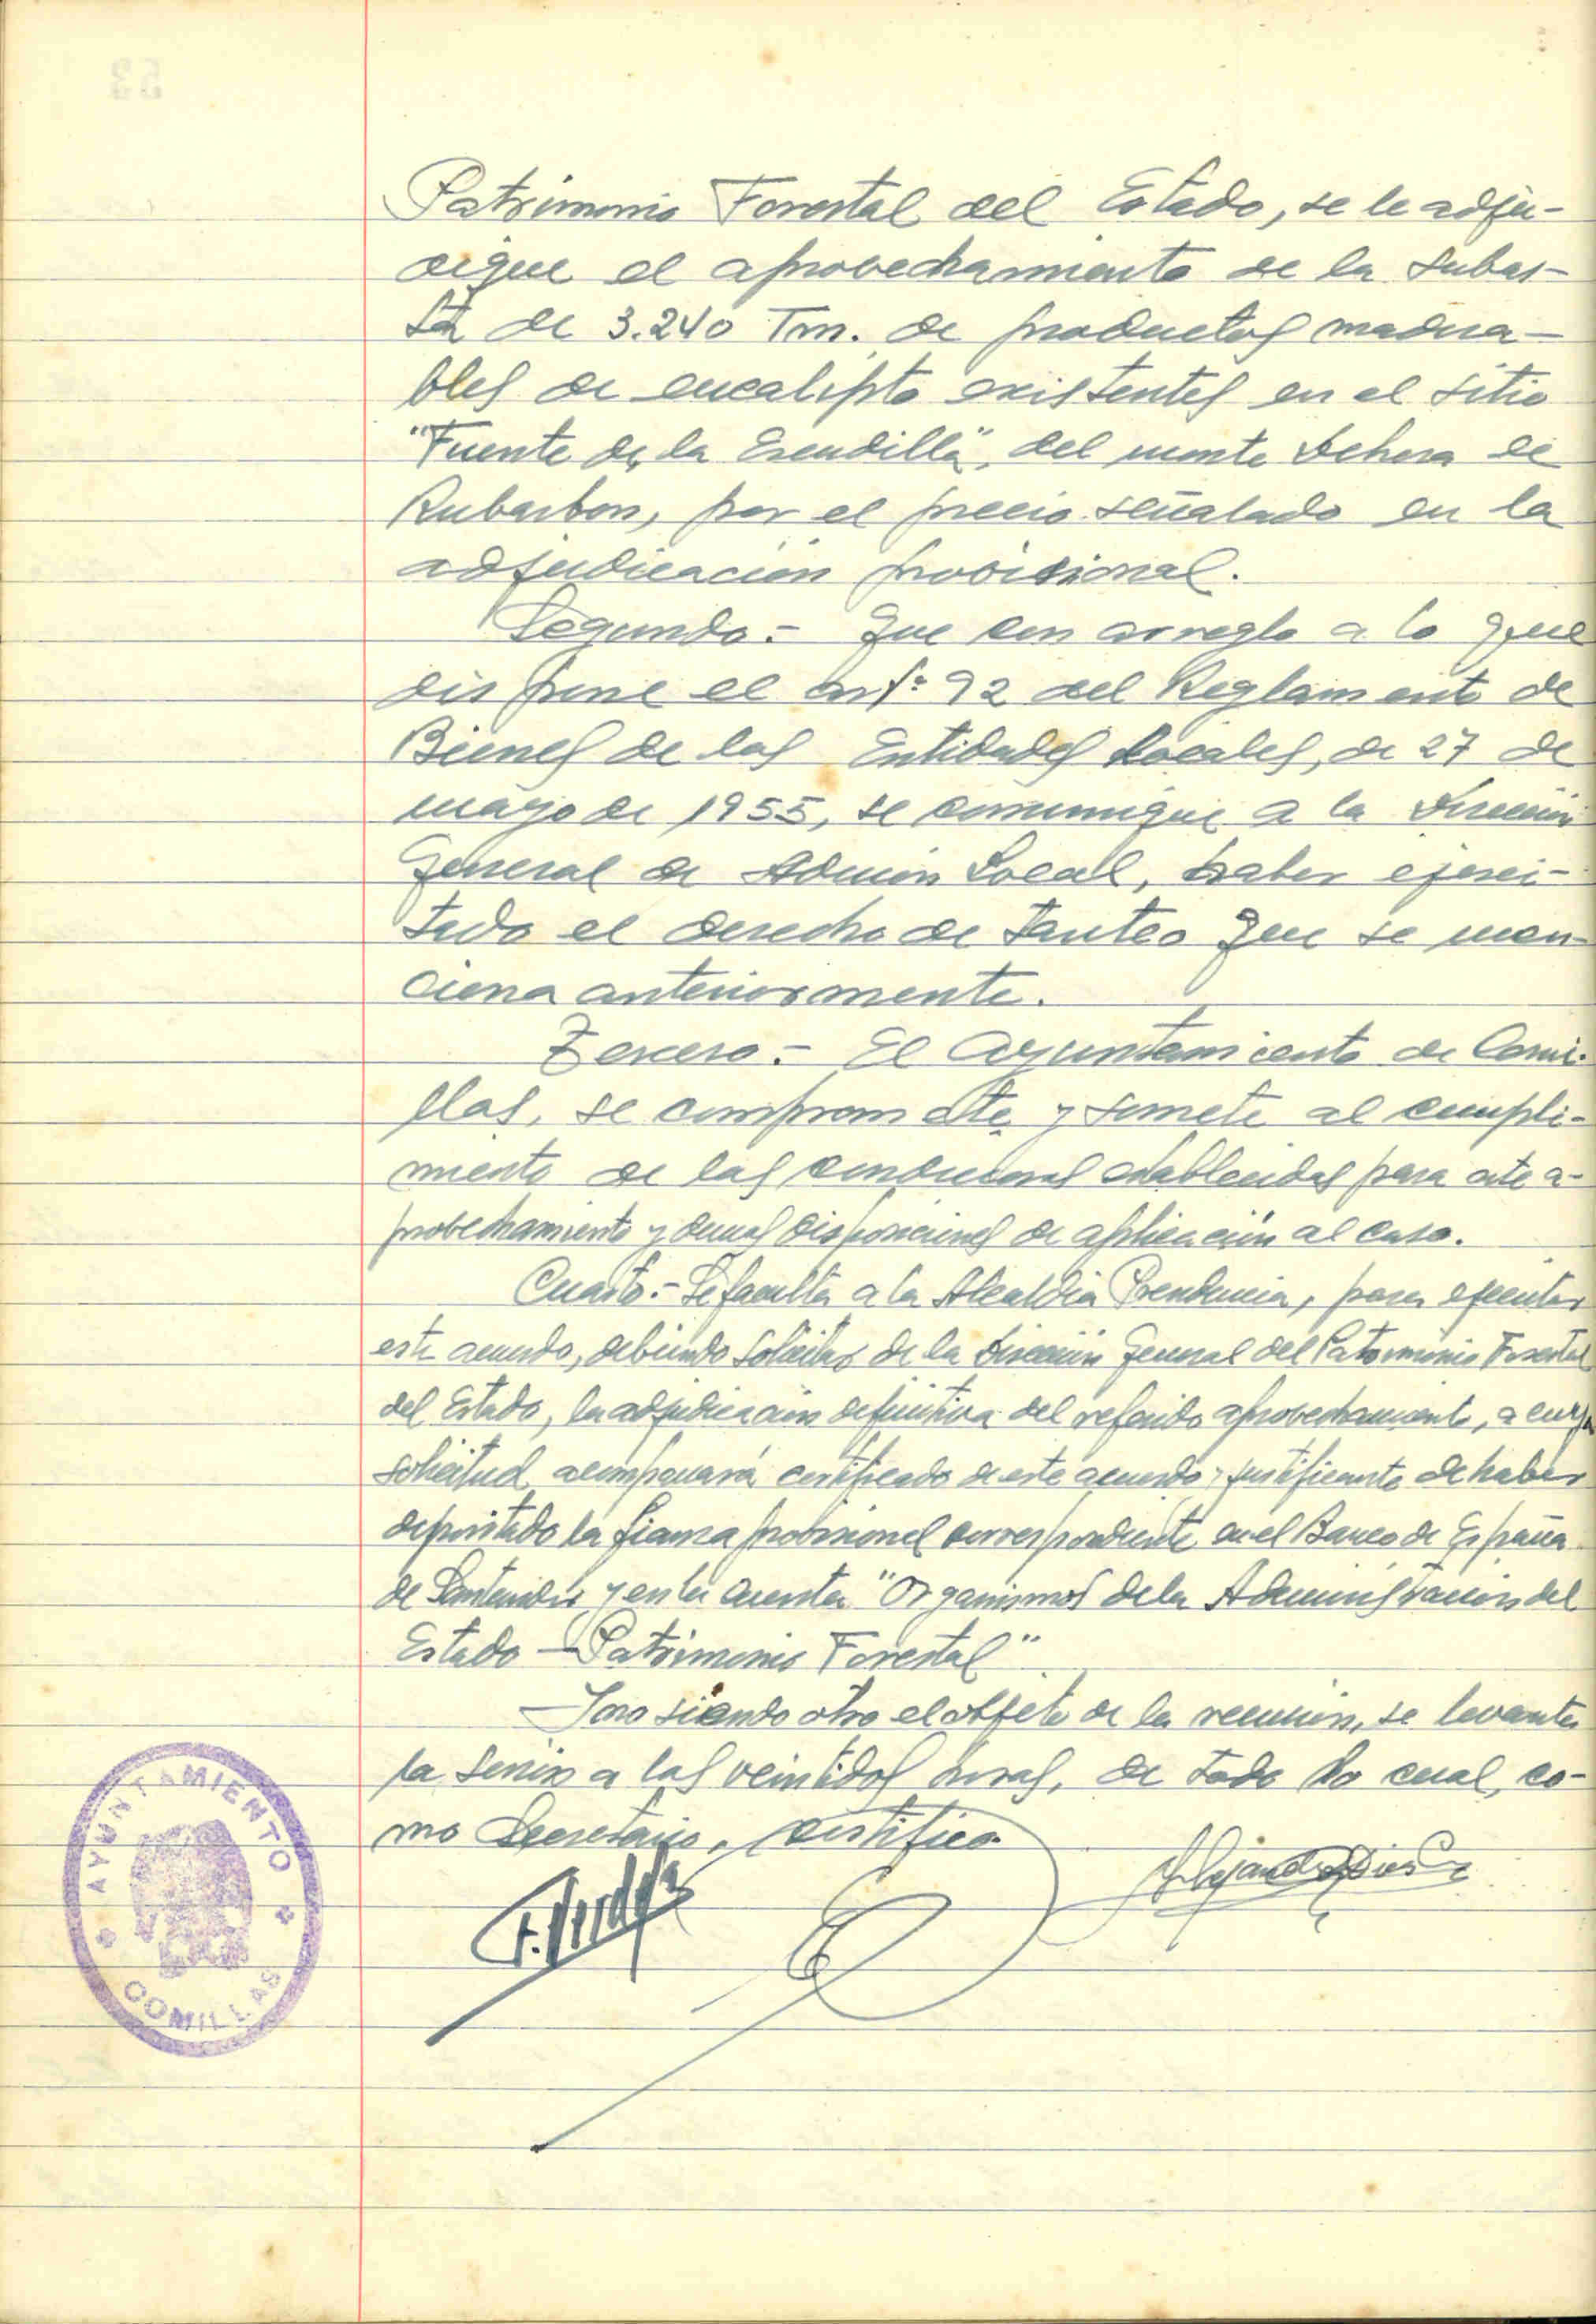 Patrimonio Forestal del Estado, se le adju-
dique el aprovechamiento de la subas-
ta de 3.240 Tm. de productos madera-
bles de eucalipto existentes en el sitio
"Fuente de la Escudilla", del monte Dehesa de
Rubarbon, por el precio señalado en la
adjudicación provisional.
Segundo.- Que con arreglo a lo que
dispone el artº 92 del Reglamento de
Bienes de las Entidades Locales, de 27 de
mayo de 1955, se comunique a la Dirección
General de Admón Local, haber ejerci-
tado el derecho de tanteo que se men-
ciona anteriormente.
Tercero.- El Ayuntamiento de Comi-
llas, se compromete y somete al cumpli-
miento de las condiciones establecidas para este a-
probechamiento y demas disposiciones de aplicación al caso.
Cuarto.- Se faculta a la Alcaldía Presidencia, para ejecutar
este acuerdo, debiendo solicitar de la Dirección General del Patrimonio Forestal
del Estado, la adjudicación definitiva del referido aprovechamiento, a cuya
solicitud acompañará certificado de este acuerdo y justificante de haber
depositado la fianza provisional correspondiente en el Banco de España
de Santander y en la cuenta "Organismos de la Administración del
Estado - Patrimonio Forestal"
Y no siendo otro el objeto de la reunión, se levanta
la sesión a las veintidos horas, de todo lo cual, co-
mo Secretario, certifico.
Alejandro Dies
AYUNTAMIENTO
COMILLAS